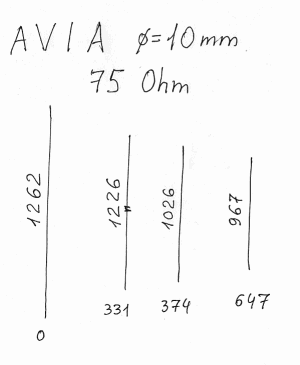 AVIA ø=10mm
75 Ohm
1262
1226
1026
967
0
331
374
647